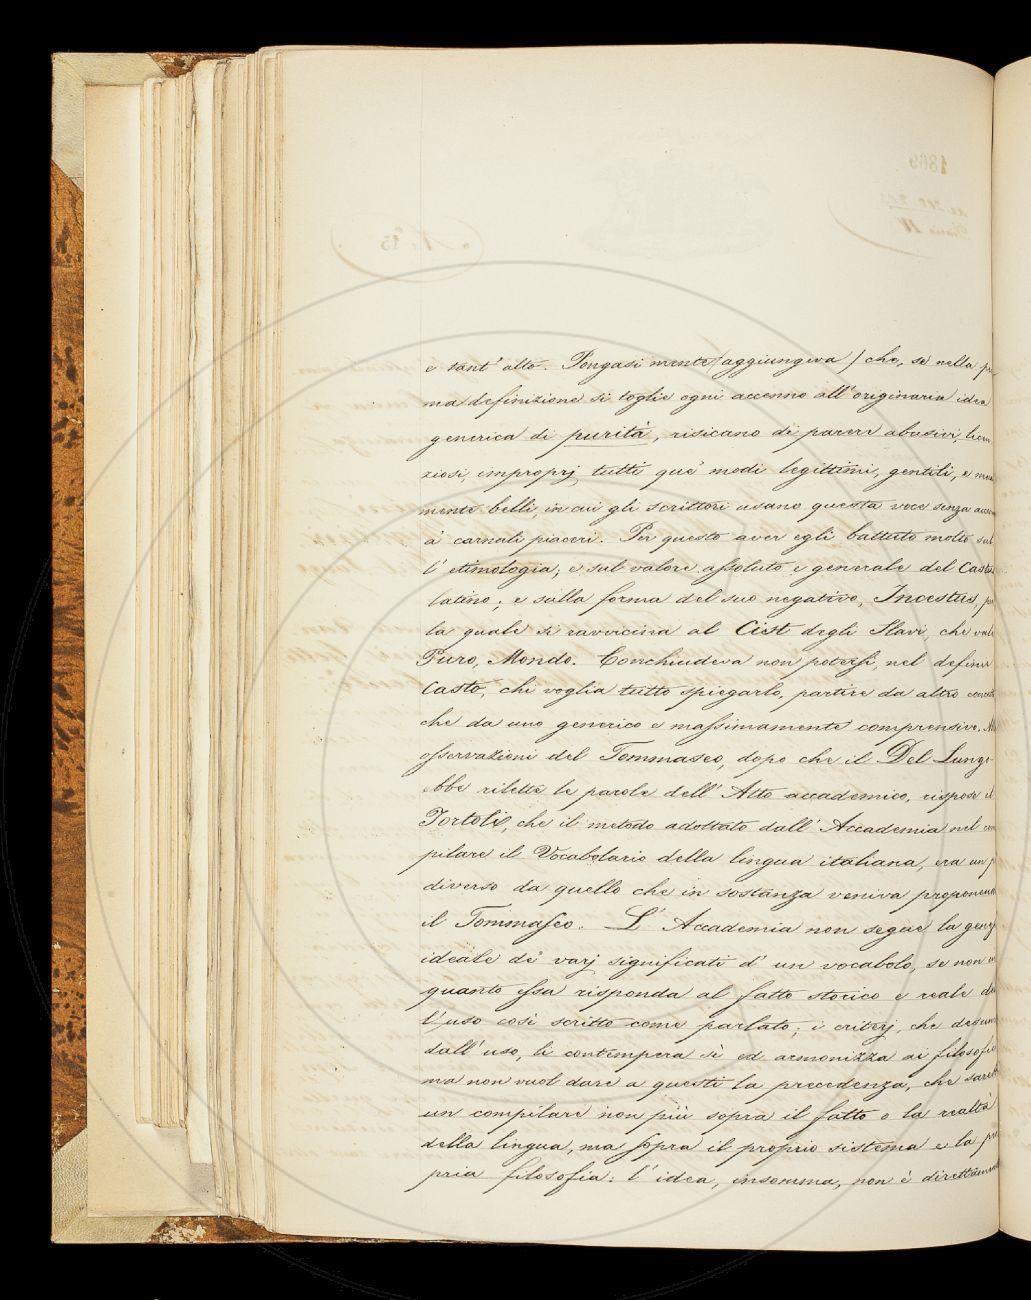 e tant'alto. Pongasi mente (aggiungeva) che, se nella pri
ma definizione si toglie ogni accenno all'originaria idea
generica di purità, risicano di parere abusivi, licen
ziosi, improprj tutti que' modi legittimi, gentili, e
mente belli, in cui gli scrittori usano questa voce senza
a' carnali piaceri. Per questo aver egli battuto molto sul
l'etimologia; e sul valore aſsoluto e generale del Castus
latino; e sulla forma del suo negativo, Incestus, per
la quale si ravvicina al Cist degli Slavi, che vale
Puro, Mondo. Conchiudeva non poterſi, nel definir
Casto, chi voglia tutto spiegarlo, partire da altro concetto
che da uno generico e maſsimamente comprensivo. Alle
oſservazioni del Tommaseo, dopo che il Del Lungo
ebbe rilette le parole dell'Atto accademico, rispose il
Tortoli, che il metodo adottato dall'Accademia nel com
pilare il Vocabolario della lingua italiana, era un po'
diverso da quello che in sostanza veniva proponendo
il Tommaſeo. L'Accademia non segue la geneſi
ideale de' varj significati d'un vocabolo, se non in
quanto eſsa risponda al fatto storico e reale del
l'uso così scritto come parlato; i criterj, che desume
dall'uso, li contempera sì ed armonizza ai filosofici
ma non vuol dare a questi la precedenza, che sarebbe
un compilare non più sopra il fatto e la realtà
della lingua, ma sopra il proprio sistema e la pro
pria filosofia: l'idea, insomma, non è direttamente